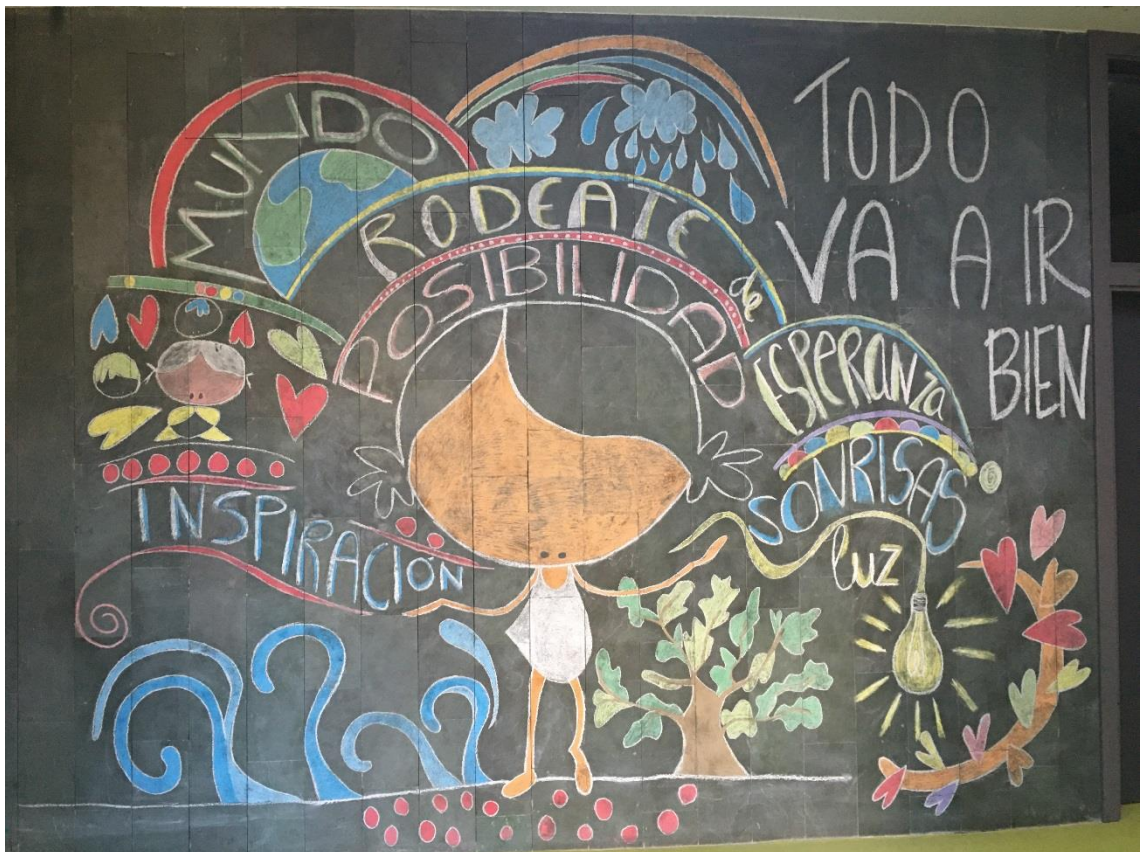 MUNDO
RODEATE
de
POSIBILIDAD
ESPERANZA
SONRISAS
luz
INSPIRACIÓN
TODO
VA A IR
BIEN